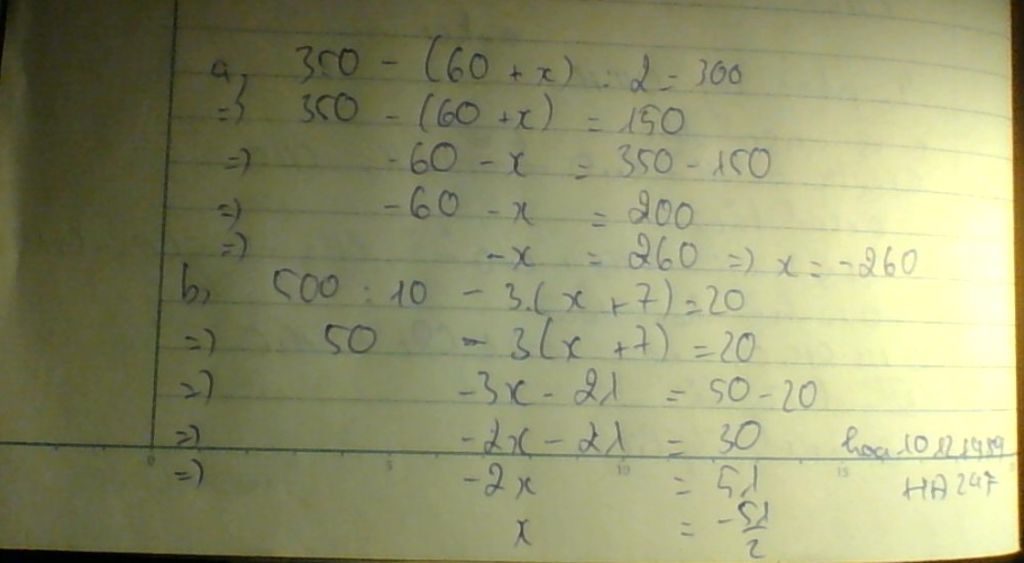 a, 350 - (60 + x) : 2 = 300
=) 350 - (60 + x) = 150
=) -60 - x = 350 - 150
=) -60 - x = 200
=) -x = 260 =) x = -260
b, 500 : 10 - 3.(x + 7) = 20
=) 50 - 3(x + 7) = 20
=) -3x - 21 = 50 - 20
=) -2x - 21 = 30
=) -2x = 51
x = -51/2
HA247